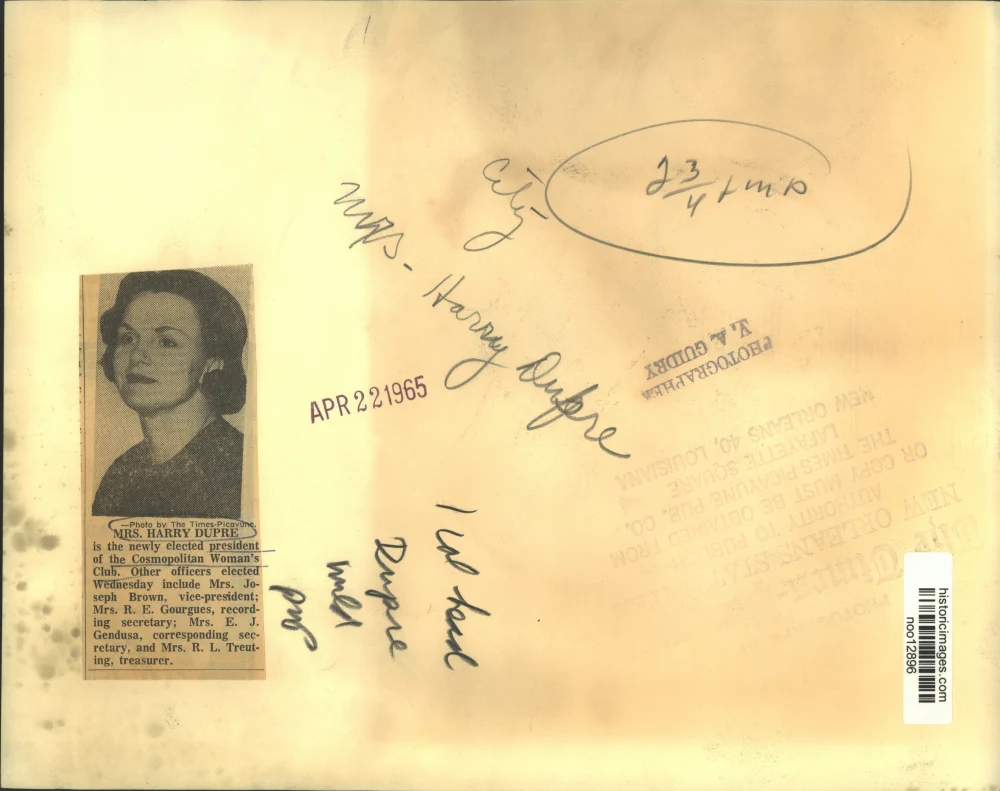 City
2 3/4 x
Mrs. Harry Dupre
PHOTOGRAPHER
V. A. GUIDRY
APR 22 1965
NEW ORLEANS STATES
AUTHORITY TO PUBLISH
OR COPY MUST BE OBTAINED FROM
THE TIMES PICAYUNE PUB. CO.
LAFAYETTE SQUARE
NEW ORLEANS 40, LOUISIANA
—Photo by The Times-Picayune.
MRS. HARRY DUPRE
is the newly elected president
of the Cosmopolitan Woman's
Club. Other officers elected
Wednesday include Mrs. Jo-
seph Brown, vice-president;
Mrs. R. E. Gourgues, record-
ing secretary; Mrs. E. J.
Gendusa, corresponding sec-
retary, and Mrs. R. L. Treut-
ing, treasurer.
1 col head
Dupre
historicimages.com
noo12896